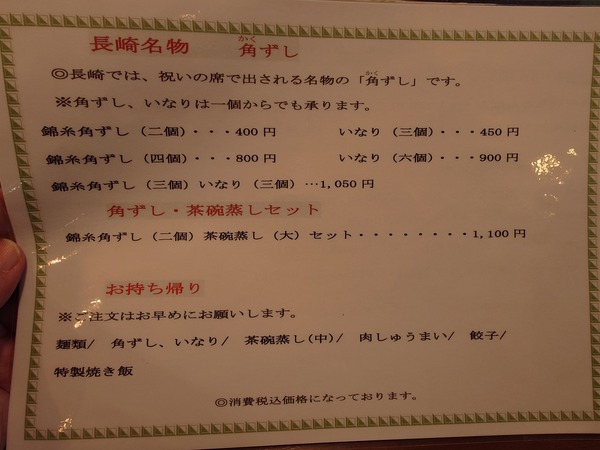 長崎名物 角ずし
かく
◎長崎では、祝いの席で出される名物の「角ずし」です。
かく
※角ずし、いなりは一個からでも承ります。
錦糸角ずし（二個）・・・400円 いなり（三個）・・・450円
錦糸角ずし（四個）・・・800円 いなり（六個）・・・900円
錦糸角ずし（三個）いなり（三個）…1,050円
角ずし・茶碗蒸しセット
錦糸角ずし（二個）茶碗蒸し（大）セット・・・・・・・・1,100円
お持ち帰り
※ご注文はお早めにお願いします。
麺類/ 角ずし、いなり/ 茶碗蒸し(中)/ 肉しゅうまい/ 餃子/
特製焼き飯
◎消費税込価格になっております。